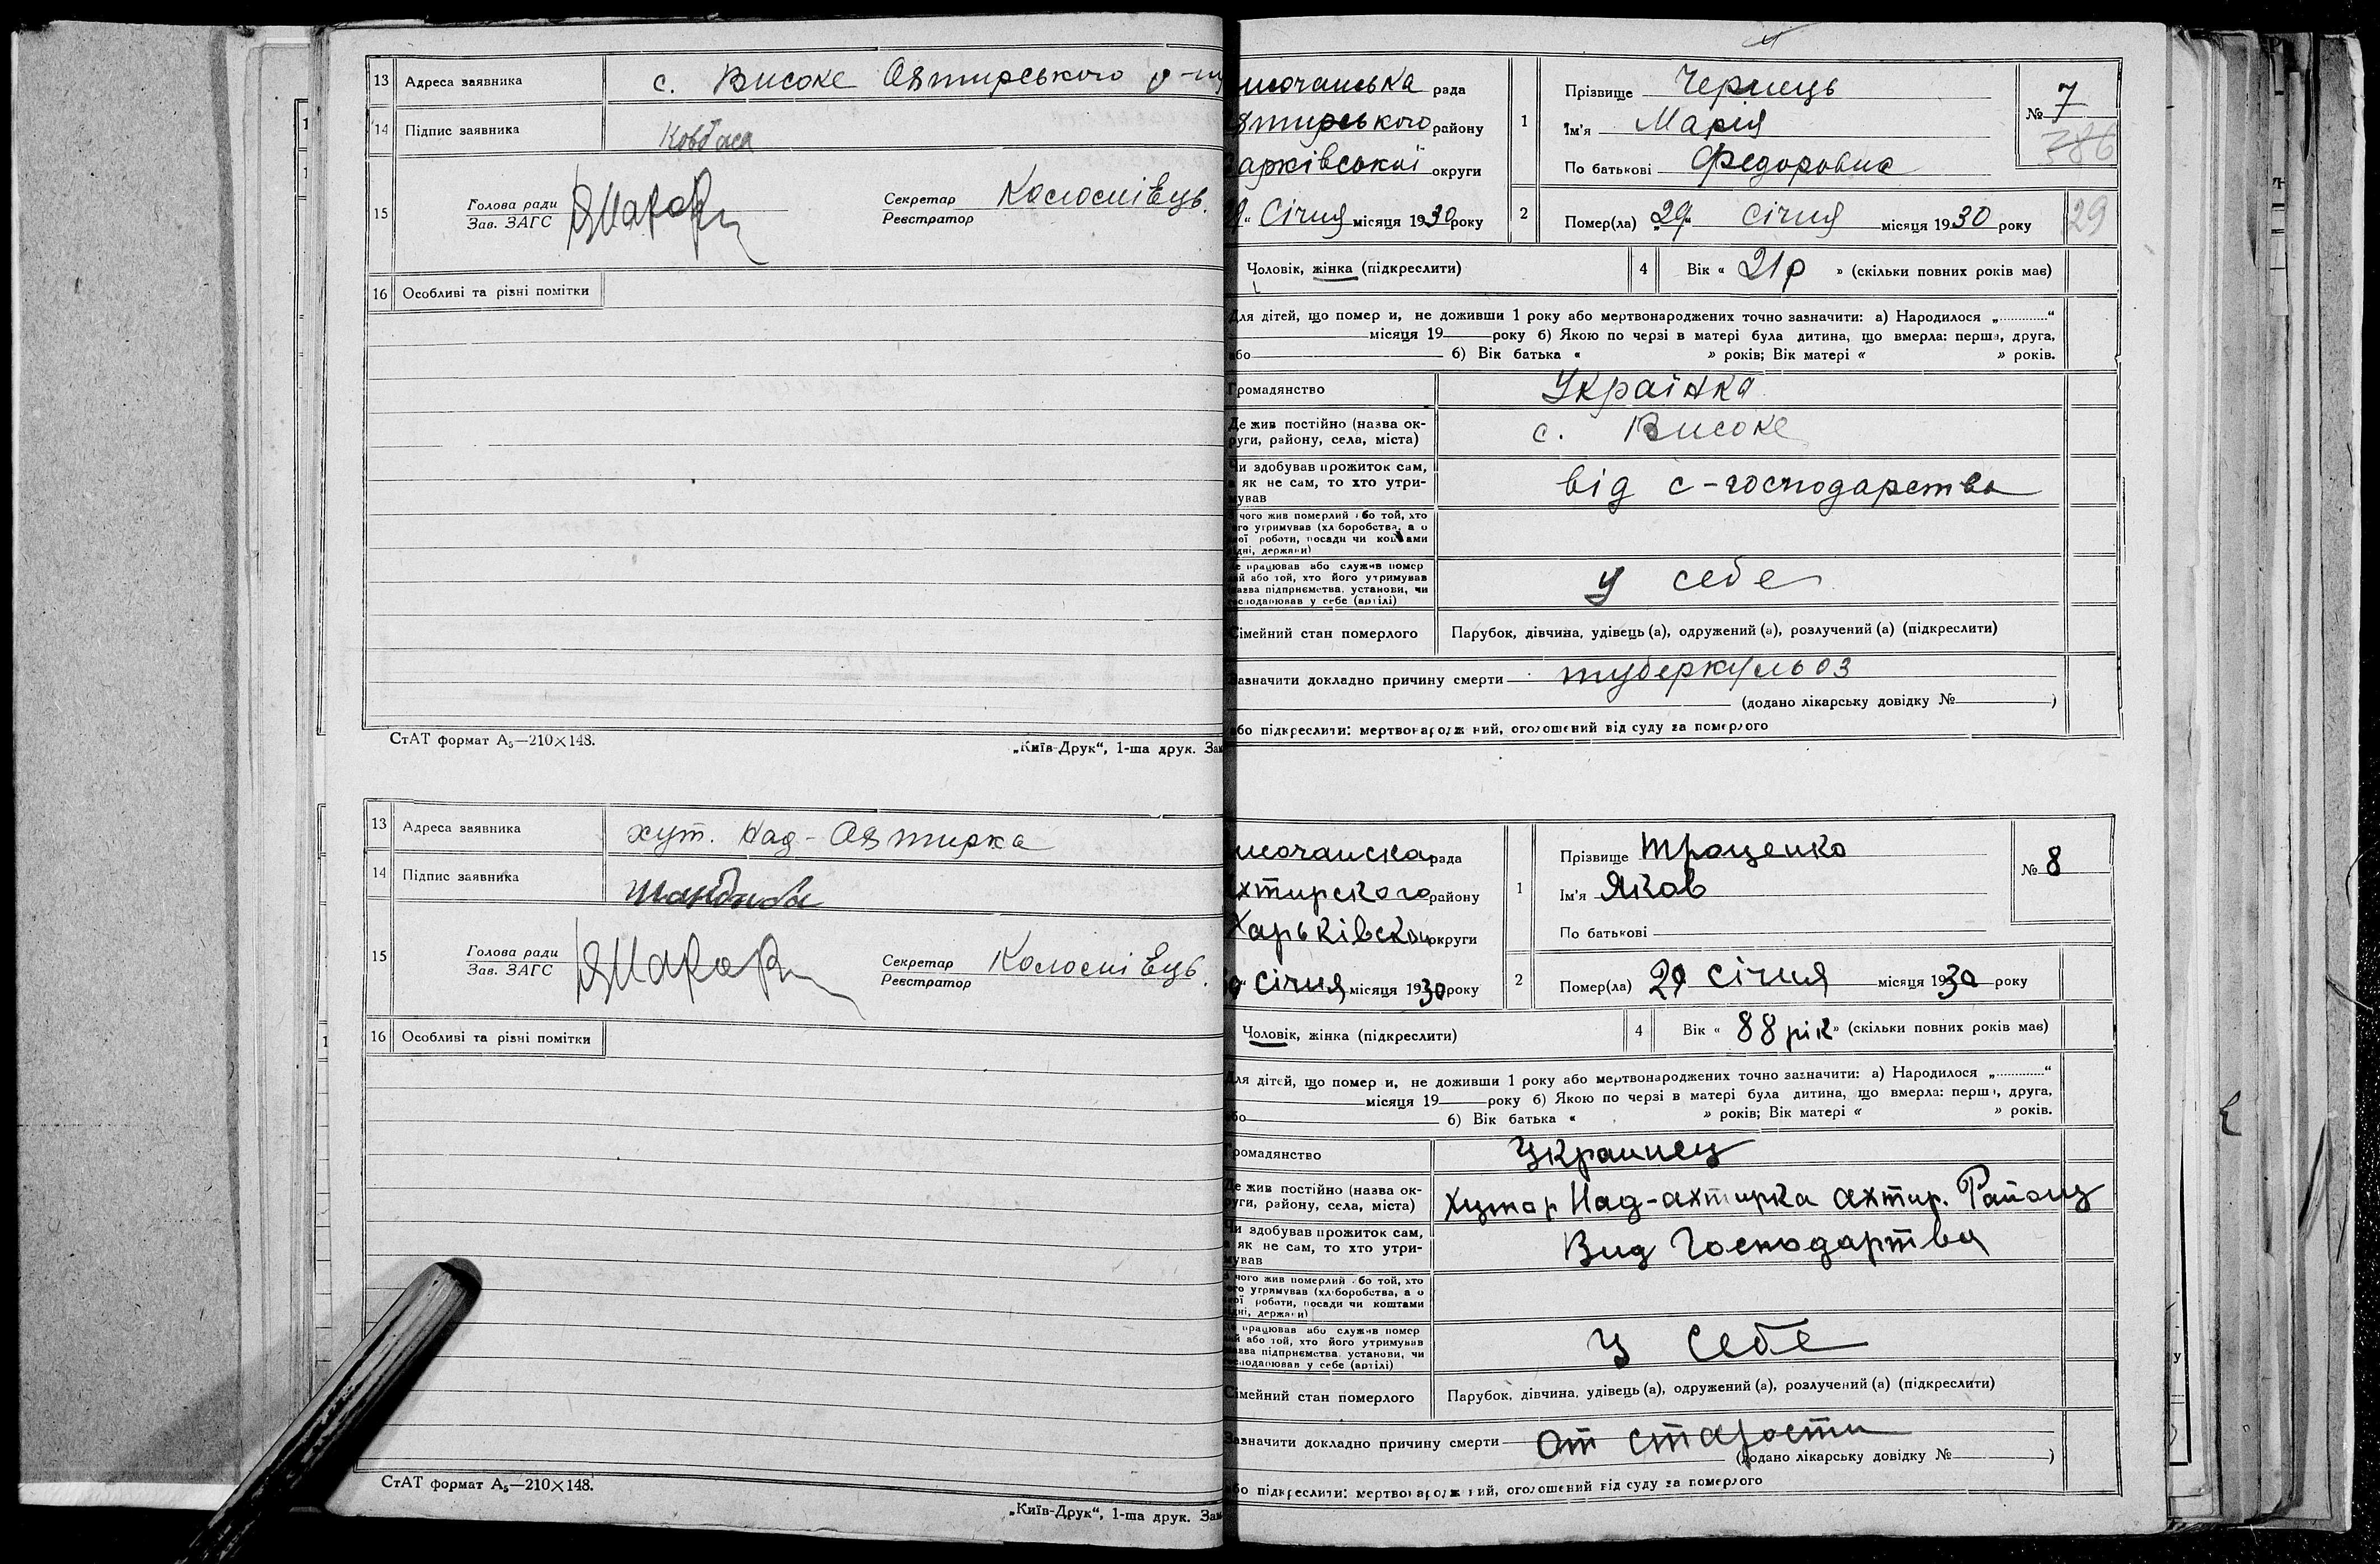 13 Адреса заявника с. Високе Охтирського р-ну
14 Підпис заявника Ковбаса
15 Голова ради
Зав. ЗАГС
Секретар
Реєстратор Колоснівець.
16 Особливі та різні помітки
СтАТ формат А₅—210×148.
„Київ-Друк“, 1-ша друк. Зам
13 Адреса заявника хут. Над-Охтирка
14 Підпис заявника
15 Голова ради
Зав. ЗАГС
Секретар
Реєстратор Колоснівець.
16 Особливі та різні помітки
СтАТ формат А₅—210×148.
„Київ-Друк“, 1-ша друк. Зам
исочанська рада
хтирського району
арківської округи
“ Січня місяця 1930 року
1 Прізвище Чернець
Ім'я Марія
По батькові Федоровна
№ 7
386
2 Помер(ла) „29“ Січня місяця 1930 року
29
Чоловік, жінка (підкреслити)
4 Вік « 21 р » (скільки повних років має)
Для дітей, що помер и, не доживши 1 року або мертвонароджених точно зазначити: а) Народилося „............“
місяця 19 року б) Якою по черзі в матері була дитина, що вмерла: перша, друга,
або б) Вік батька « » років; Вік матері « » років.
Громадянство Українка
Де жив постійно (назва ок-
руги, району, села, міста) с. Високе
Чи здобував прожиток сам,
а як не сам, то хто утри-
мував від с-господарства
чого жив померлий або той, хто
його утримував (хліборобства, а о
ної роботи, посади чи коштами
рідні, держави)
Де працював або служив помер
лий або той, хто його утримував
(назва підприємства, установи, чи
господарював у себе (артілі) у себе
Сімейний стан померлого Парубок, дівчина, удівець (а), одружений (а), розлучений (а) (підкреслити)
Зазначити докладно причину смерти туберкульоз
(додано лікарську довідку № )
або підкреслити: мертвонароджений, оголошений від суду за померлого
исочанска рада
хтирского району
Харьківскои округи
“ Січня місяця 1930 року
1 Прізвище Троценко
Ім'я Яков
По батькові
№ 8
2 Помер(ла) 29 Січня місяця 1930 року
Чоловік, жінка (підкреслити)
4 Вік « 88 рік » (скільки повних років має)
Для дітей, що помер и, не доживши 1 року або мертвонароджених точно зазначити: а) Народилося „............“
місяця 19 року б) Якою по черзі в матері була дитина, що вмерла: перша, друга,
або б) Вік батька « » років; Вік матері « » років.
Громадянство Украинец
Де жив постійно (назва ок-
руги, району, села, міста) Хутор Над-ахтирка ахтир. Району
Чи здобував прожиток сам,
а як не сам, то хто утри-
мував Вид Господартва
чого жив померлий або той, хто
його утримував (хліборобства, а о
ної роботи, посади чи коштами
рідні, держави)
Де працював або служив помер
лий або той, хто його утримував
(назва підприємства, установи, чи
господарював у себе (артілі) У Себе
Сімейний стан померлого Парубок, дівчина, удівець (а), одружений (а), розлучений (а) (підкреслити)
Зазначити докладно причину смерти От старости
(додано лікарську довідку № )
або підкреслити: мертвонароджений, оголошений від суду за померлого